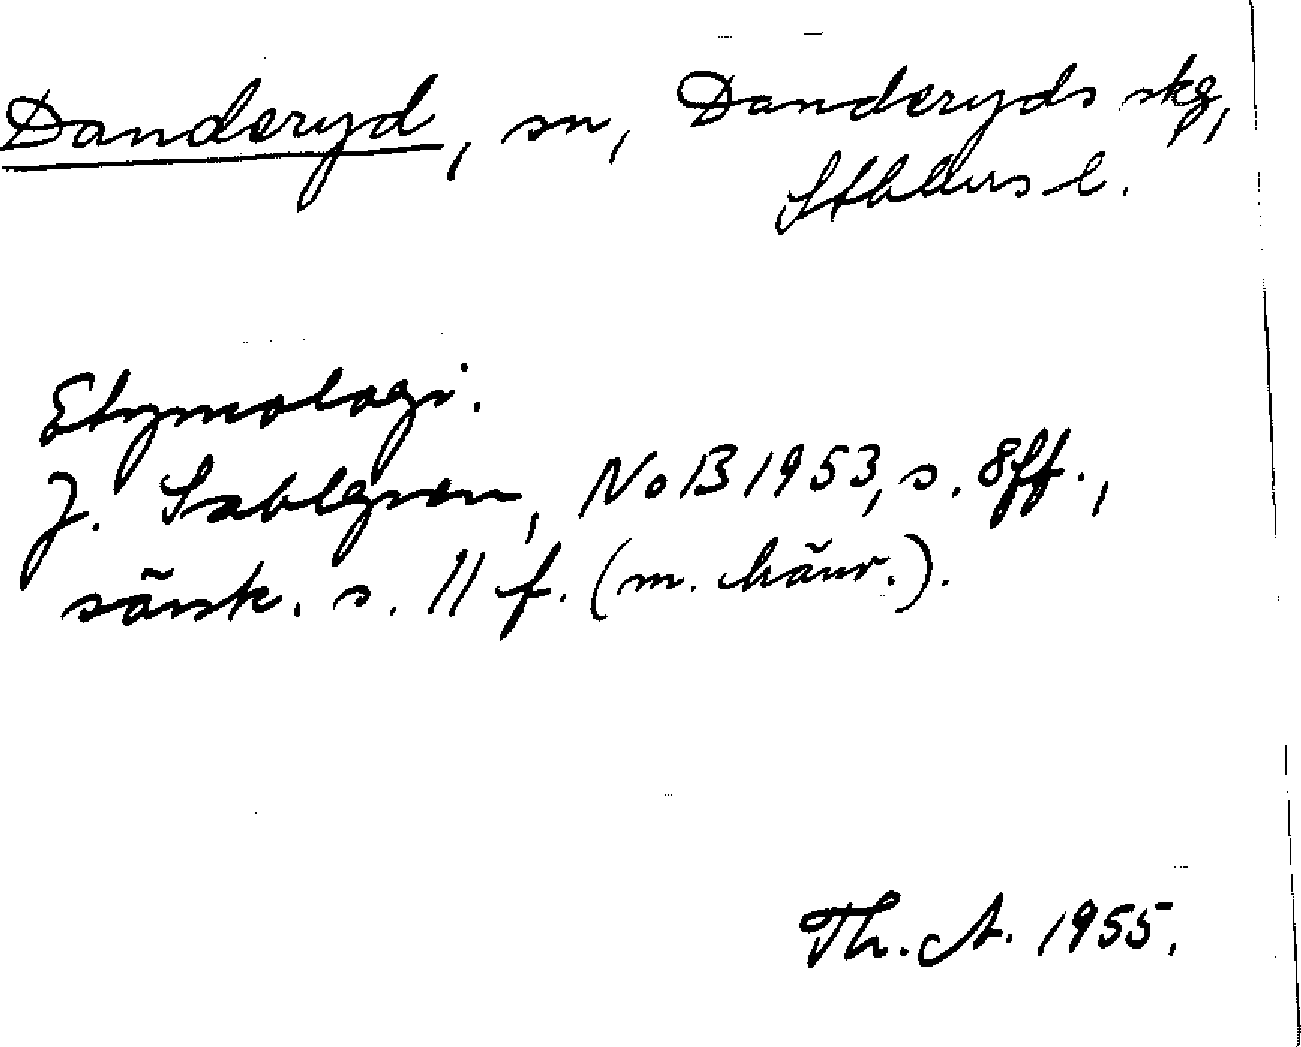 Danderyd, sn, Danderyds skg,
Sthlms l.
Etymologi.
J. Sahlgren, NoB 1953, s. 8 ff.,
särsk. s. 11 f. (m. hänv.).
Th. A. 1955.